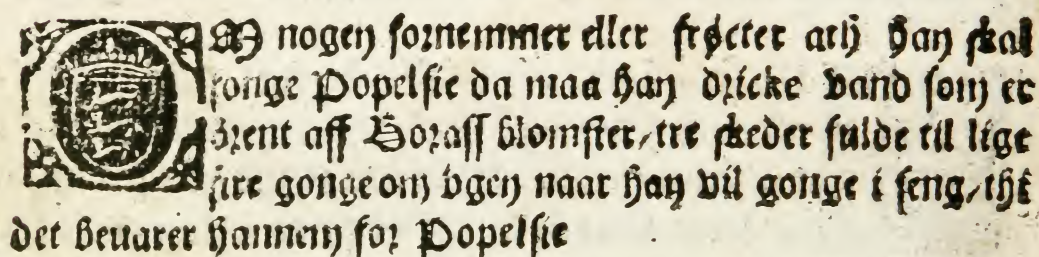 OM nogen fornemmer eller frycter ath han skal
fonge Popelsie da maa han dricke vand som er
brent aff Borass blomster/ tre skeder fulde til lige
fire gonge om vgen naar han vil gonge i seng/ thi
det beuarer hannem for Popelsie